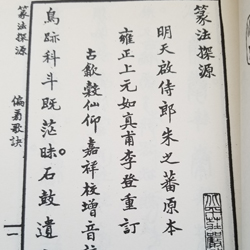 篆法探源
明天啟侍郎朱之蕃原本
雍正上元如真甫李登重訂
古歙穀仙仰嘉祥校增音
鳥跡科斗既茫昧石鼓遺
篆法探源
偏旁歌訣
一